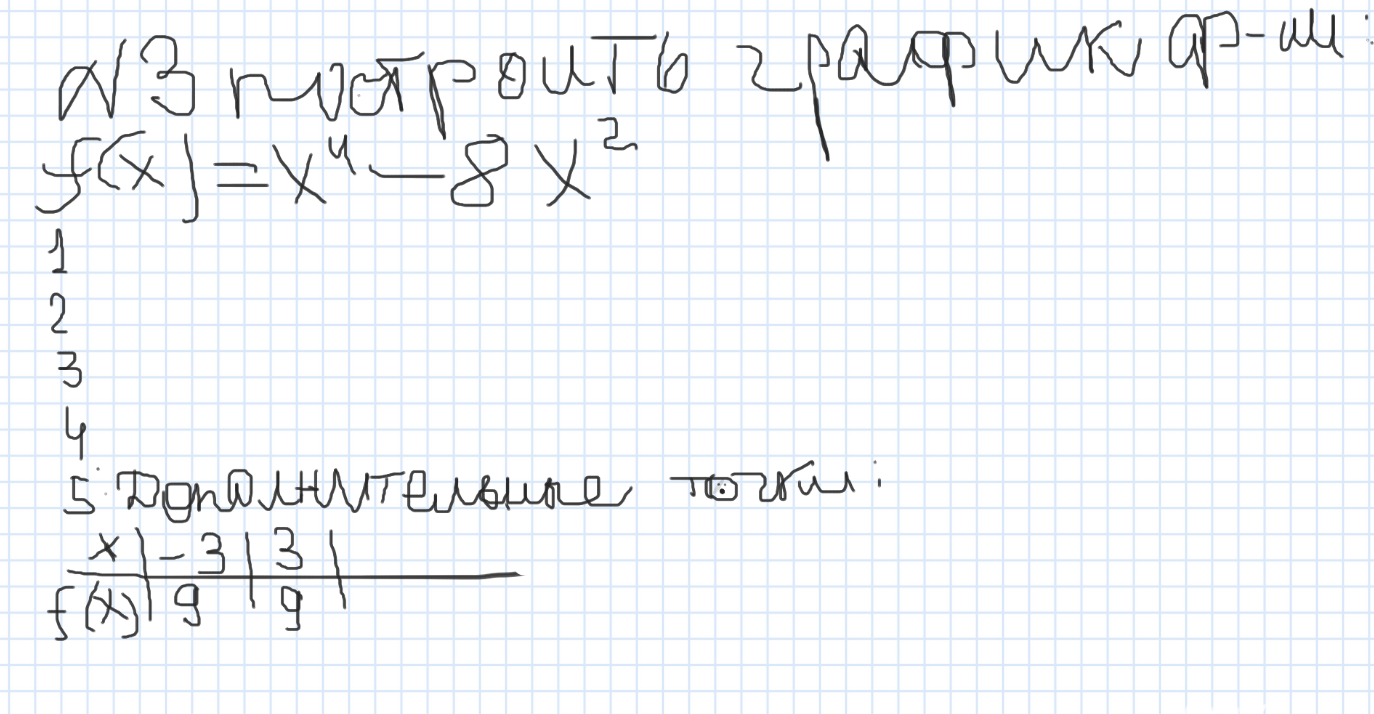 №3 построить график ф-ии:
f(x)=x⁴-8x²
1
2
3
4
5. Дополнительные точки:
x | -3 | 3 |
f(x) | 9 | 9 |